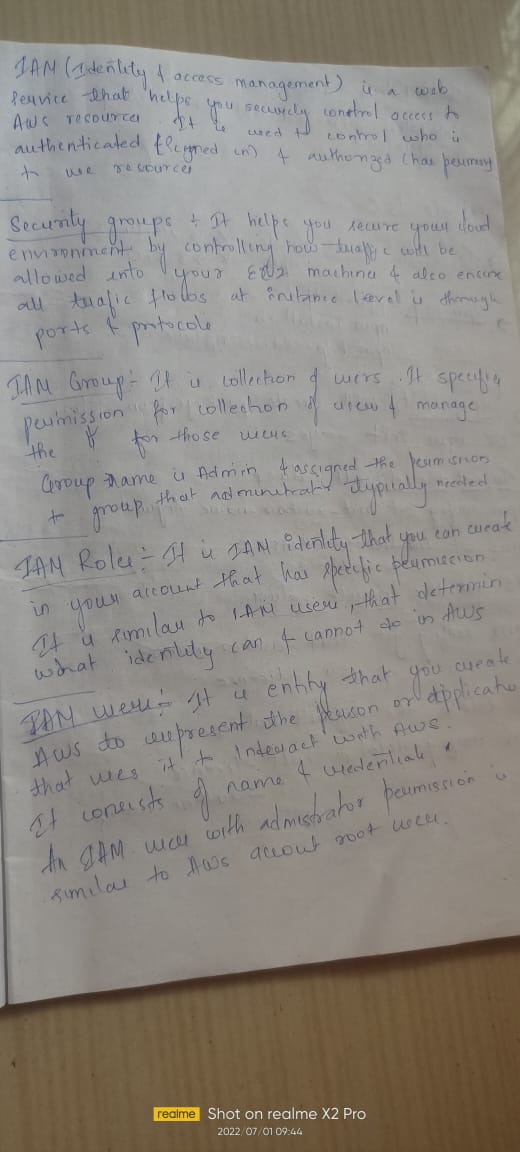 IAM (Identity & access management) is a web
service that helps you securely control access to
AWS resources. It is used to control who is
authenticated (signed in) & authorized (has
to use resources
Security groups : It helps you secure your cloud
environment by controlling how traffic will be
allowed into your EC2 machine & also ensure
all trafic flows at instance level is through
ports & protocols
IAM Group:- It is collection of users. It specifies
permission for collection of users & manage
the for those users
Group name is Admin & assigned the permission
to group that administrator typically needed
IAM Roles:- It is IAM identity that you can create
in your account that has specific permission
It is similar to IAM user, that determin
what identity can & cannot do in AWS
IAM users:- It is entity that you create
AWS to represent the person or applicatio
that uses it to interact with AWS.
It consists of name & credentials.
An IAM user with admistrator permission is
similar to AWS accout root user.
realme Shot on realme X2 Pro
2022/07/01 09:44